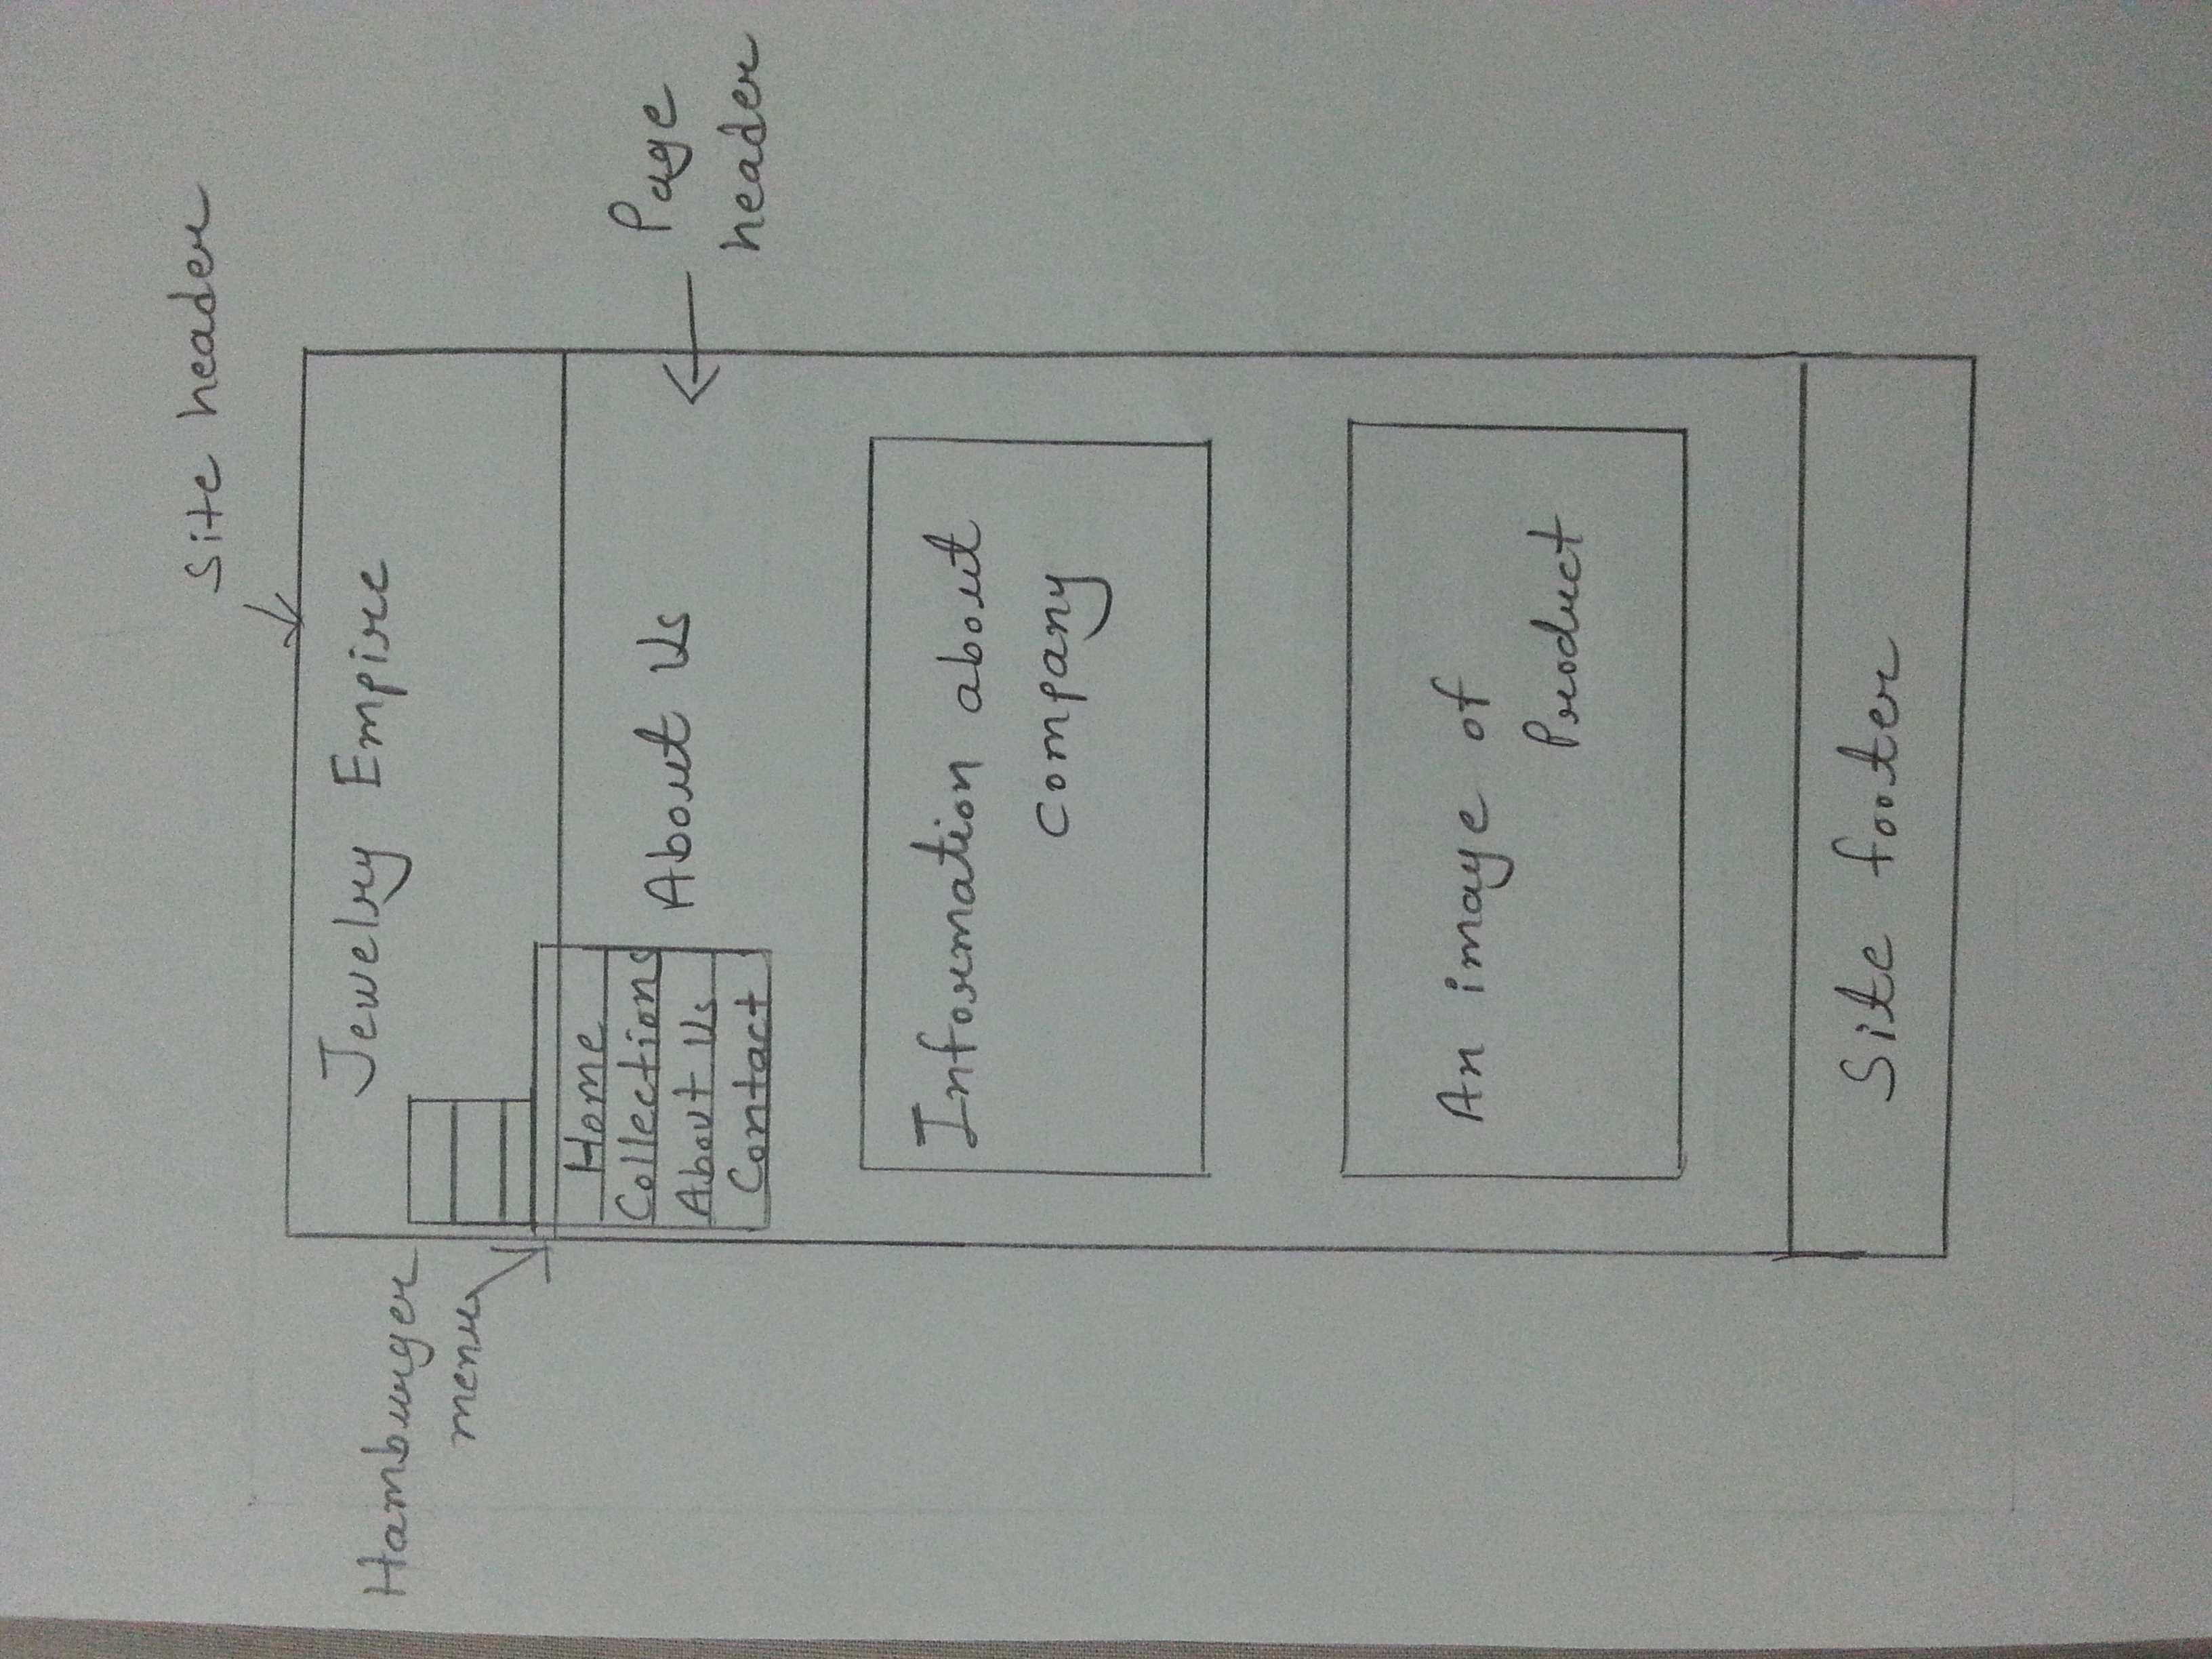 Site header
Jewelry Empire
Hamburger
menu
Home
Collections
About Us
Contact
About Us
Page
header
Information about
company
An image of
Product
Site footer